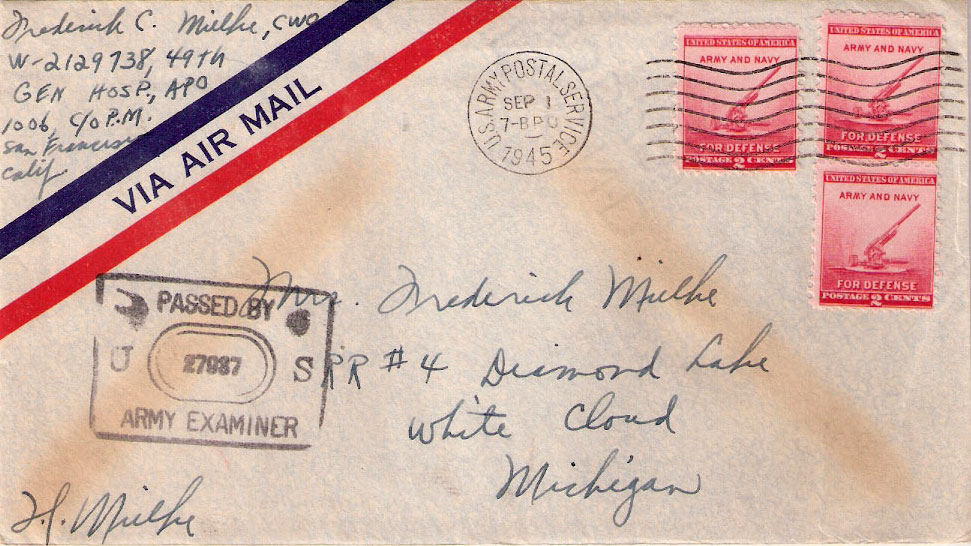 Frederick C. Mielke, CWO
W-2129738, 49th
GEN HOSP., APO
1006, C/O P.M.
San Francisco
Calif
VIA AIR MAIL
U.S. ARMY POSTAL SERVICE
SEP 1
7-B.P.O
1945
UNITED STATES OF AMERICA
ARMY AND NAVY
FOR DEFENSE
POSTAGE 2 CENTS
UNITED STATES OF AMERICA
ARMY AND NAVY
FOR DEFENSE
POSTAGE 2 CENTS
UNITED STATES OF AMERICA
ARMY AND NAVY
FOR DEFENSE
POSTAGE 2 CENTS
PASSED BY
U 27987 S
ARMY EXAMINER
Mrs. Frederick Mielke
RR #4 Diamond Lake
White Cloud
Michigan
F. Mielke